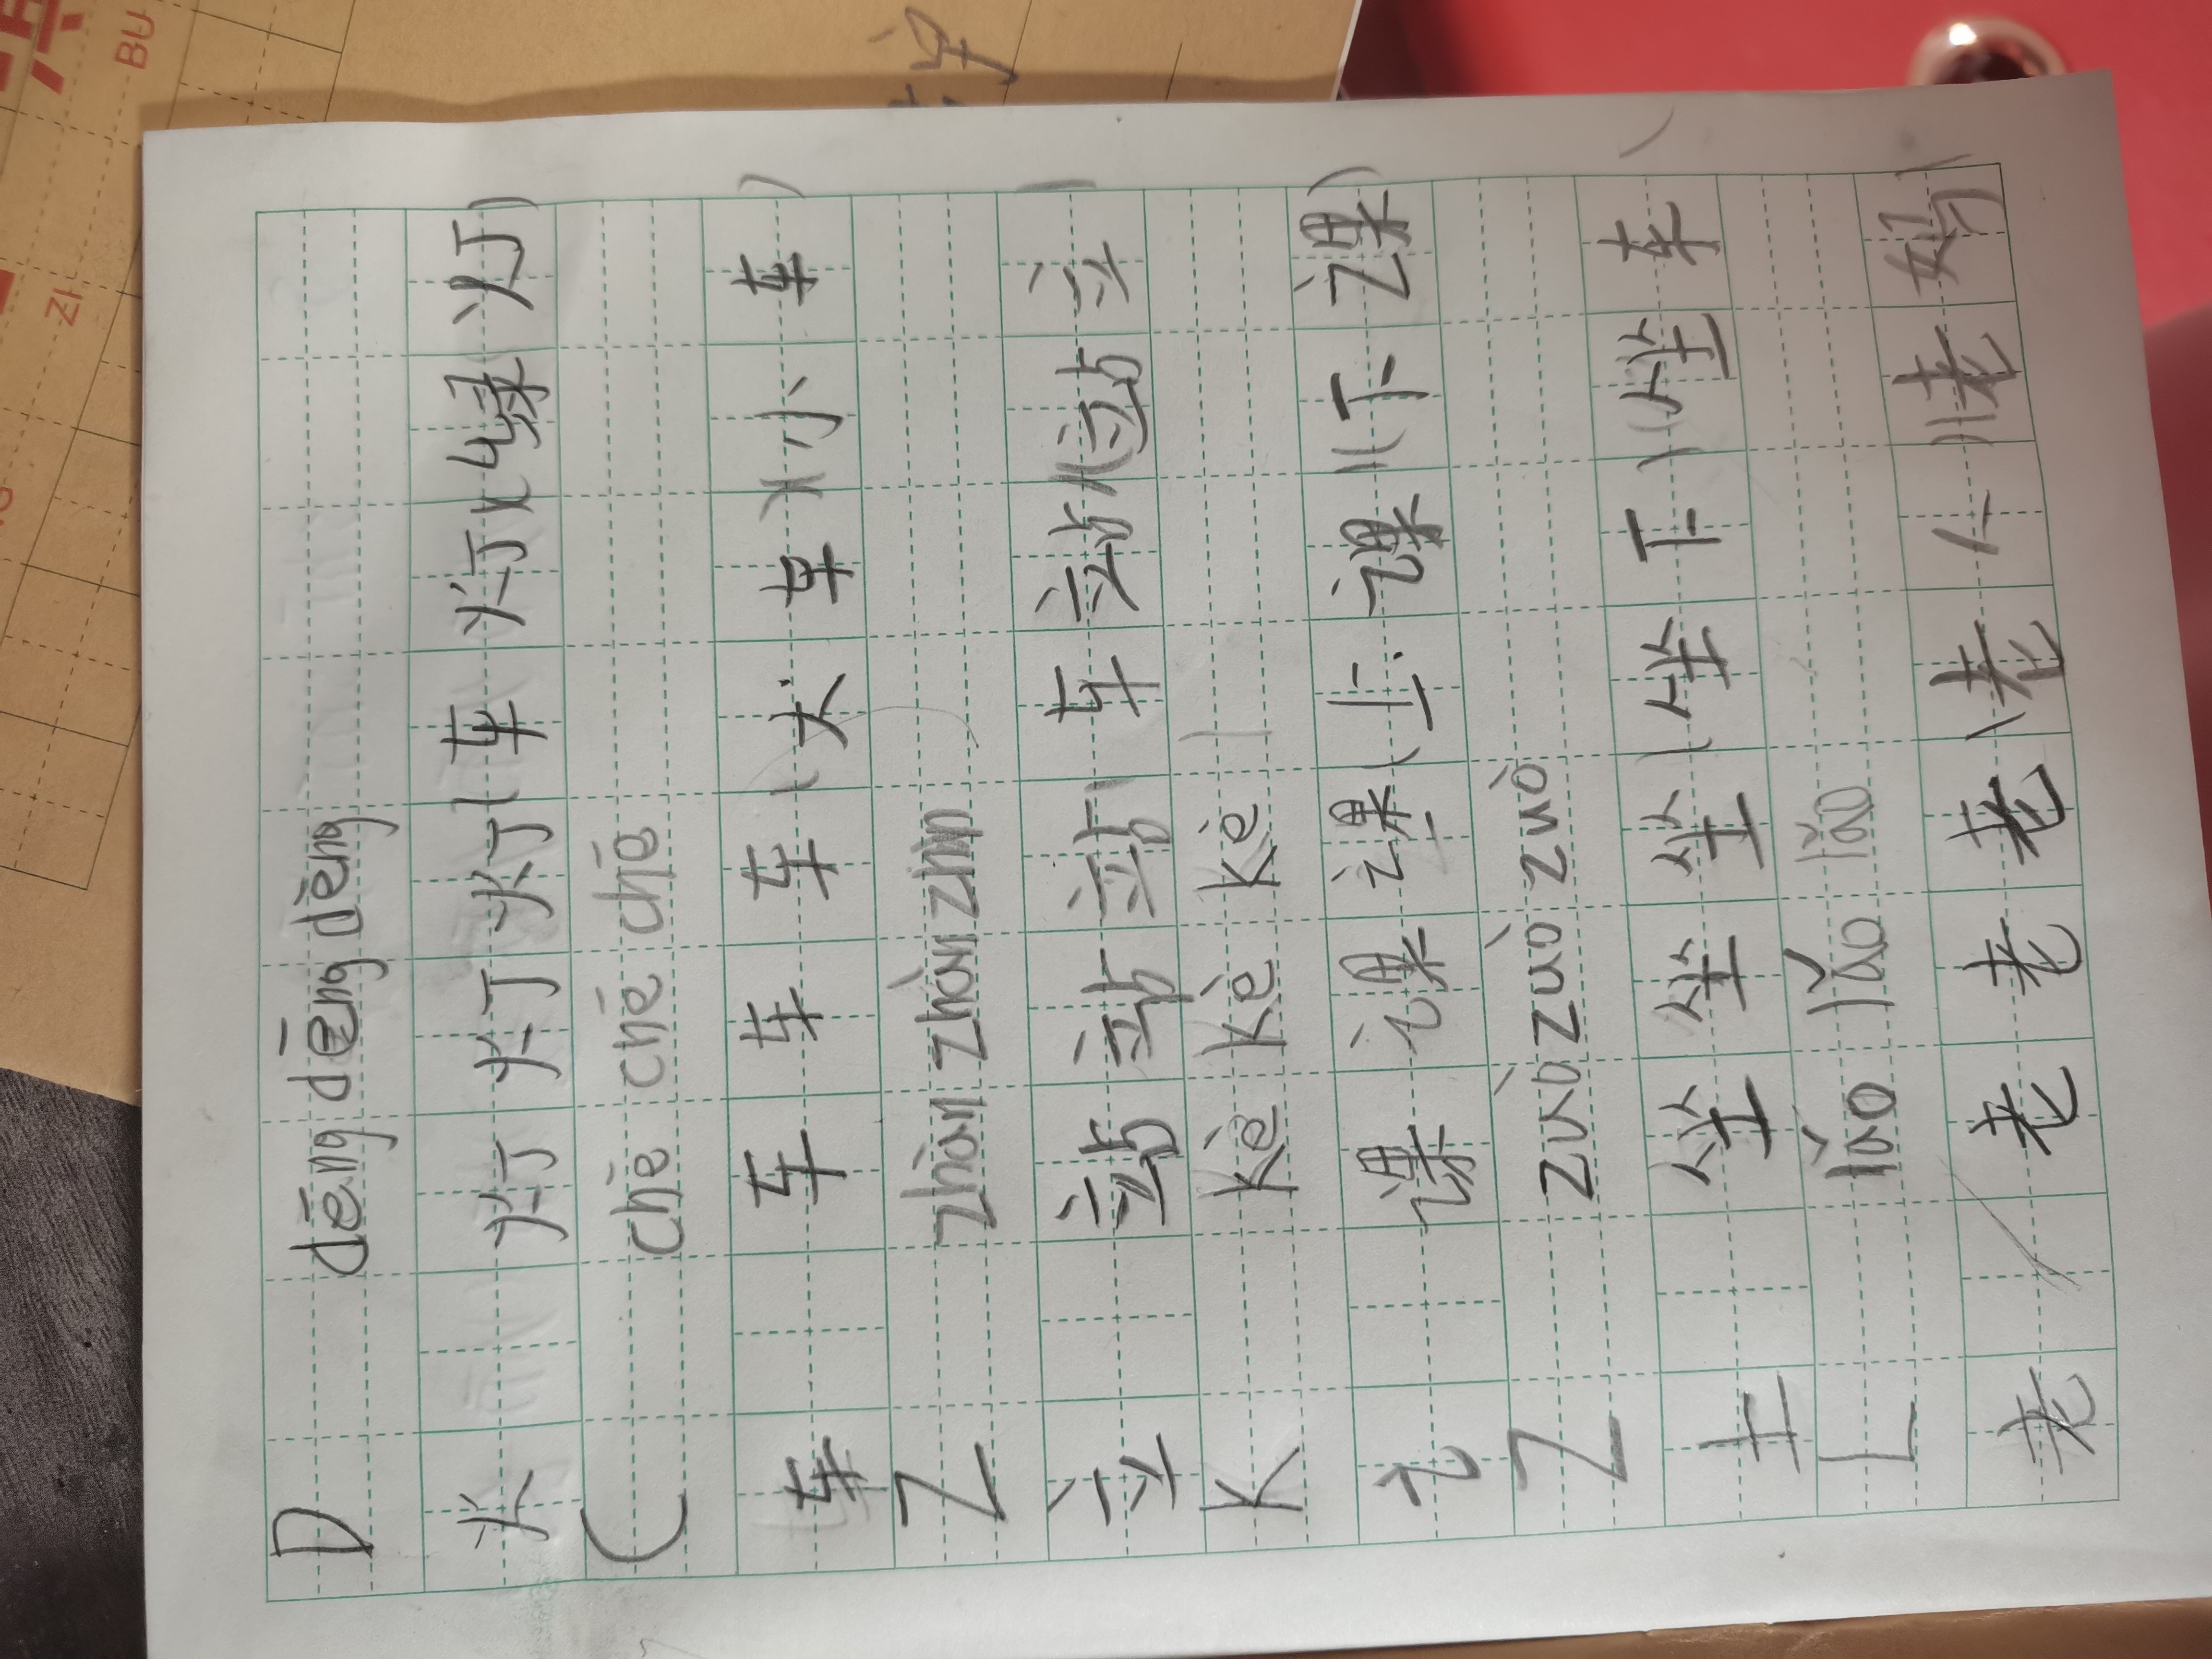 D dēng dēng dēng
火 灯 灯 灯 (车灯)(绿灯)
C chē chē chē
车 车 车 车 (大车)(小车)
Z zhàn zhàn zhàn
立 站 站 站 (车站)(站立)
K kè kè kè
讠 课 课 课 (上课)(下课)
Z zuò zuò zuò
土 坐 坐 坐 (坐下)(坐车)
L lǎo lǎo lǎo
耂 老 老 老 (老人)(老妈)
BU
ZI